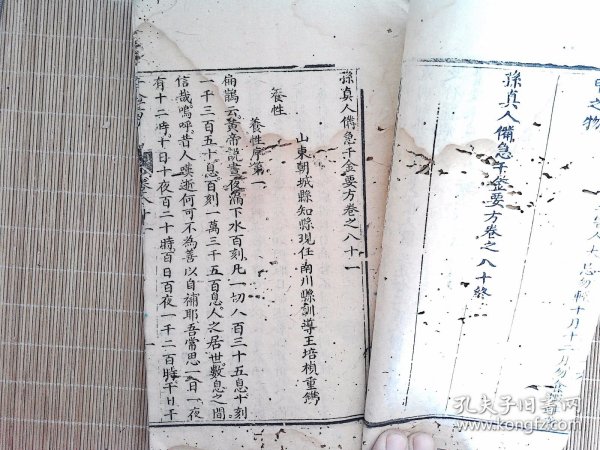 孫真人備急千金要方卷之八十終
孫真人備急千金要方卷之八十一
山東朝城縣知縣現任南川縣訓導王培楨重鐫
養性
養性序第一
扁鵲云黃帝説晝夜漏下水百刻凡一切八百三十五息十刻
一千三百五十息百刻一萬三千五百息人之居世數息之間
信哉嗚呼昔人嘆逝何可不為善以自補耶吾常思一日一夜
有十二時十日十夜百二十時百日百夜一千二百時千日千
孔夫子旧书网
www.kongfz.com